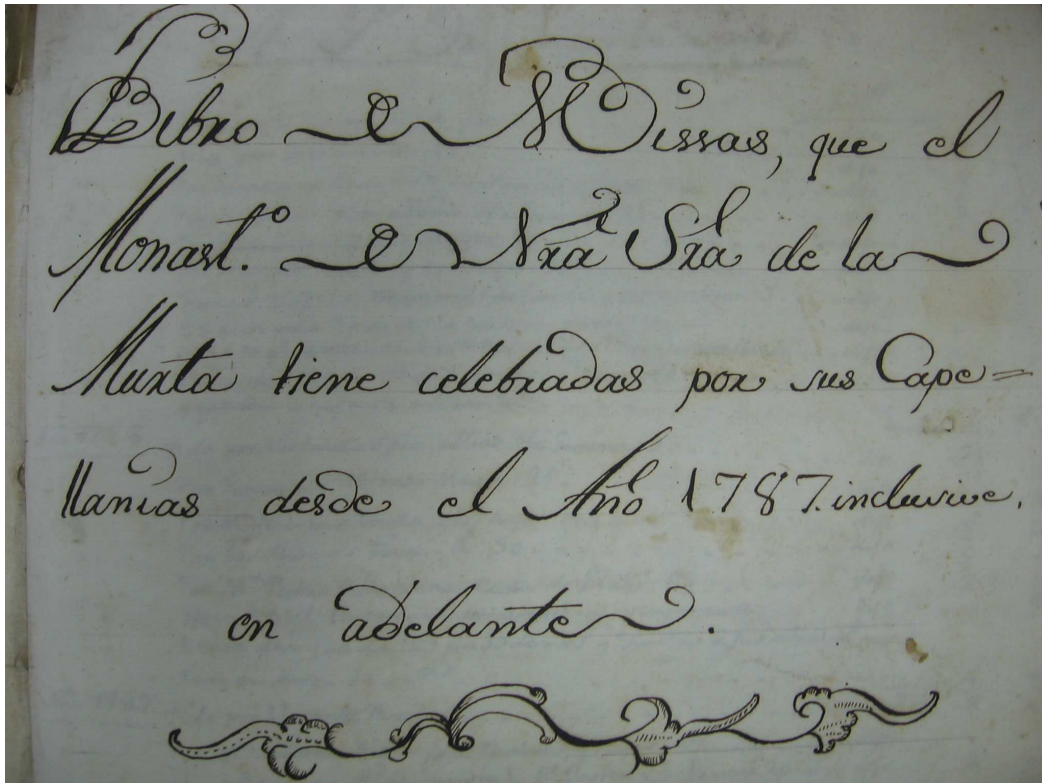 Libro de Missas, que el
Monast.º de Nrã Srã de la
Murta tiene celebradas por sus Cape=
llanias desde el Año 1787. inclusive,
en adelante.